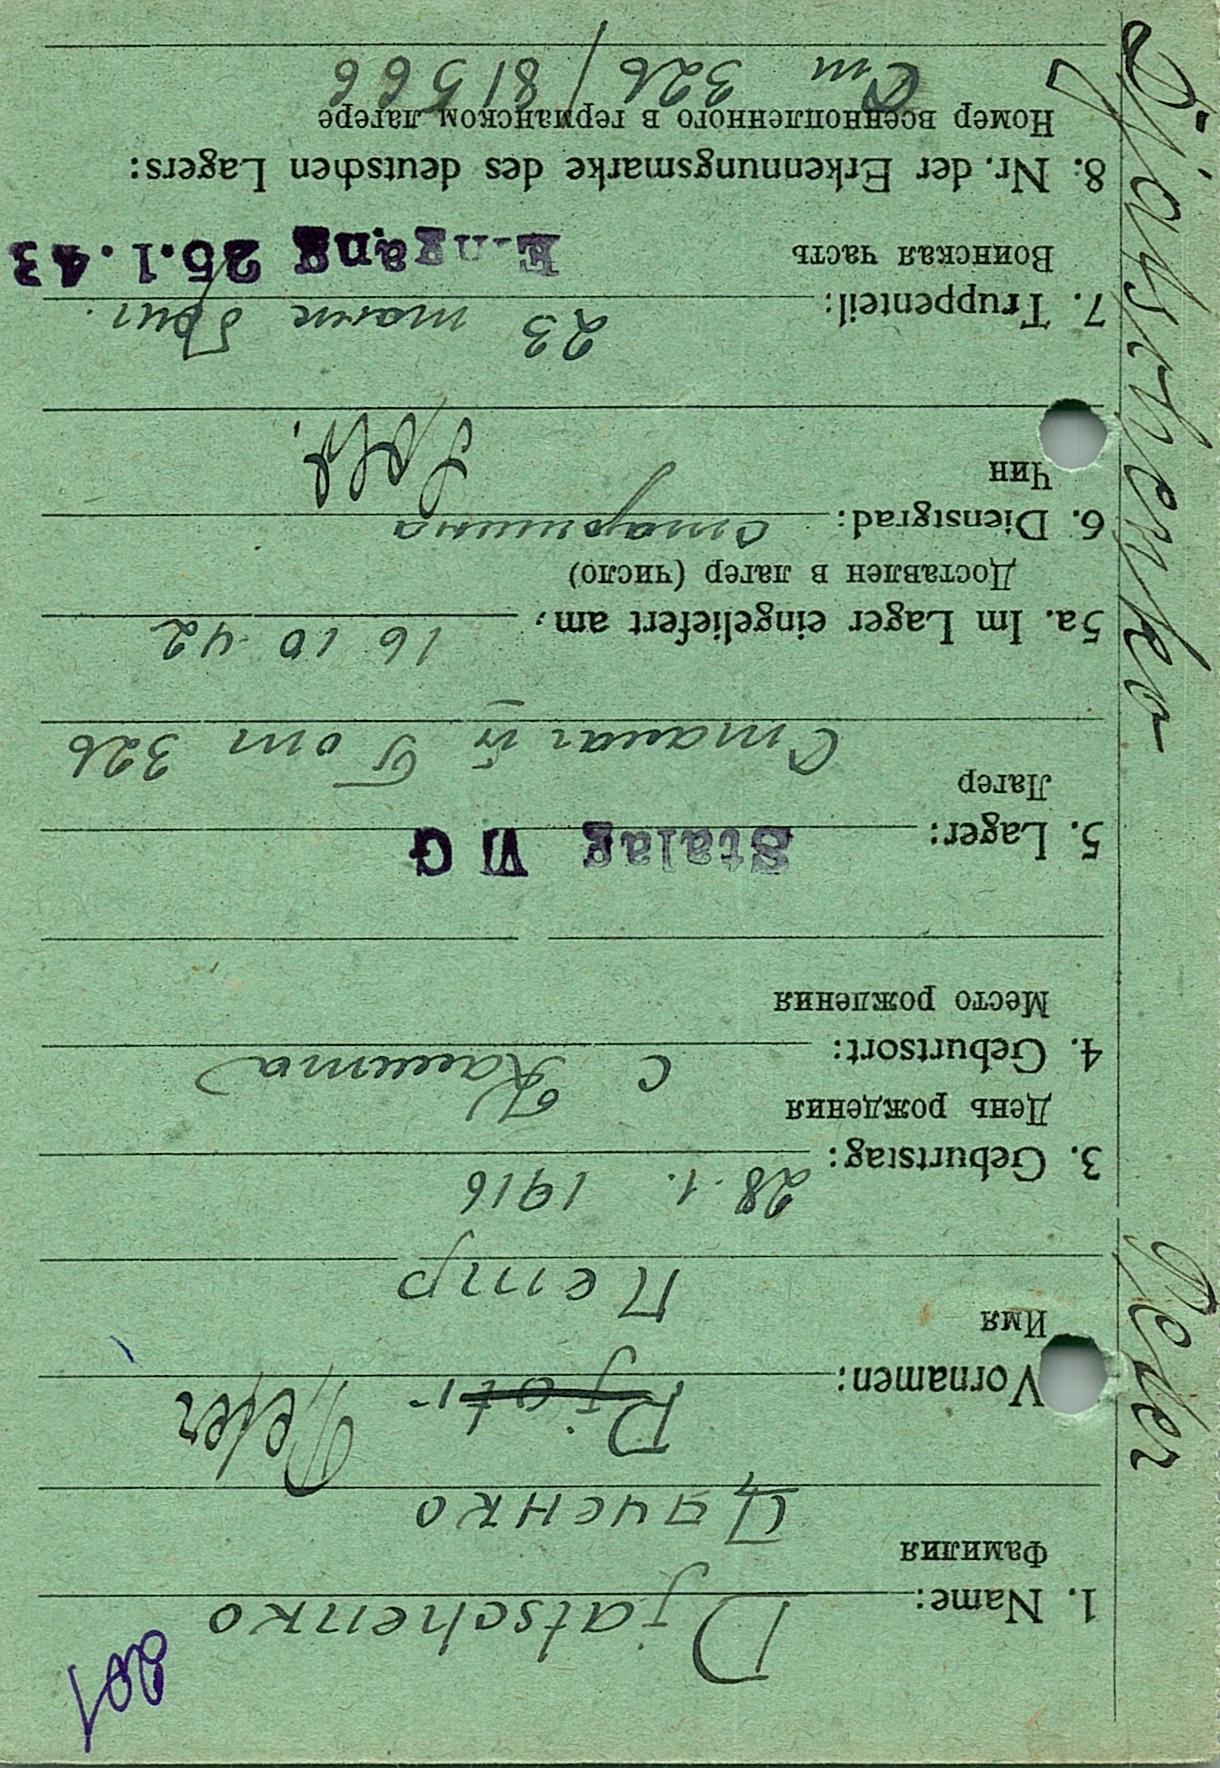 1. Name: Djatschenko
Фамилия
Дяченко
Vornamen: Pjotr Peter
Имя
Петр
3. Geburtstag: 28.1. 1916
День рождения
4. Geburtsort: с
Место рождения
5. Lager: Stalag VI G
Лагер
326
5a. Im Lager eingeliefert am: 16 10 42
Доставлен в лагер (число)
6. Dienstgrad: старшина
Чин
7. Truppenteil: 23 танк
Воинская часть
Eingang 26.1.43
8. Nr. der Erkennungsmarke des deutschen Lagers:
Номер военнопленного в германском лагере
Ст 326/81566
Djatschenko Peter